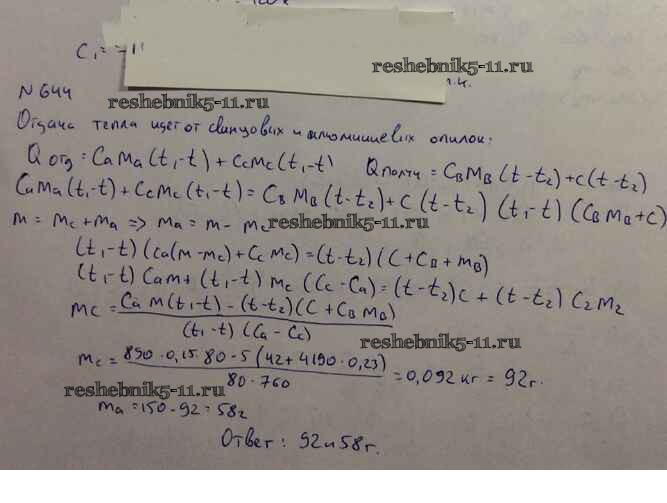 reshebnik5-11.ru
N 644
reshebnik5-11.ru
Отдача тепла идет от свинцовых и алюминиевых опилок:
Qотд = CaMa(t₁-t) + CcMc(t₁-t) Qполуч = CвMв(t-t₂)+c(t-t₂)
CaMa(t₁-t)+CcMc(t₁-t) = CвMв(t-t₂)+c(t-t₂) (t₁-t)(CвMв+c)
m = mc+ma => ma = m - mc
reshebnik5-11.ru
(t₁-t)(ca(m-mc)+Cc Mc)=(t-t₂)(C+Cв+mв)
(t₁-t) Cam + (t₁-t) mc (Cc-Ca)=(t-t₂)c + (t-t₂) C₂m₂
mc = Ca m(t₁-t) - (t-t₂)(C + Cв Mв)
(t₁-t) (Ca - Cc)
mc = 890·0,15·80-5(42+4190·0,23)
80·760
= 0,092 кг = 92г.
reshebnik5-11.ru
ma = 150-92 = 58г
Ответ: 92 и 58г.